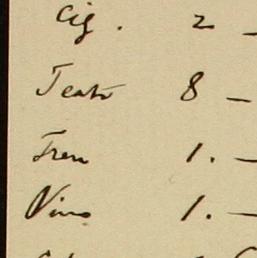 Cig. 2 —
Teatr 8 —
Tren 1. —
Vino 1. —